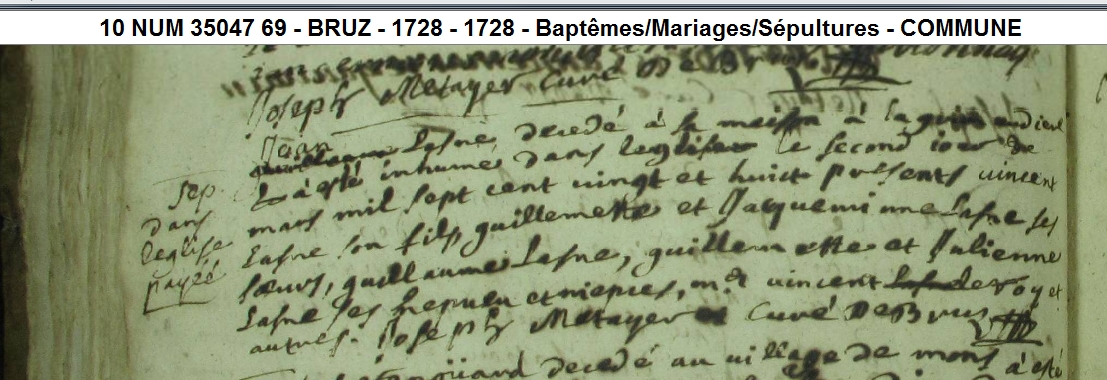 10 NUM 35047 69 - BRUZ - 1728 - 1728 - Baptêmes/Mariages/Sépultures - COMMUNE
Joseph Metayer Curé De Brus
Jean
guillaume Lasne, decedé à sa maison à la
Sep
& à esté inhumé dans leglise le second iour de
dans
mars mil sept cent vingt et huict presents vincent
leglise
Lasne son fils guillemette et Jacqueminne Lasne ses
payéé
sœurs, guillaume Lasne, guillemette et Julienne
Lasne ses nepveu et niepces, mr vincent Lasne deroy et
autres. Joseph Metayer Curé De Brus
decedé au village de mons à esté